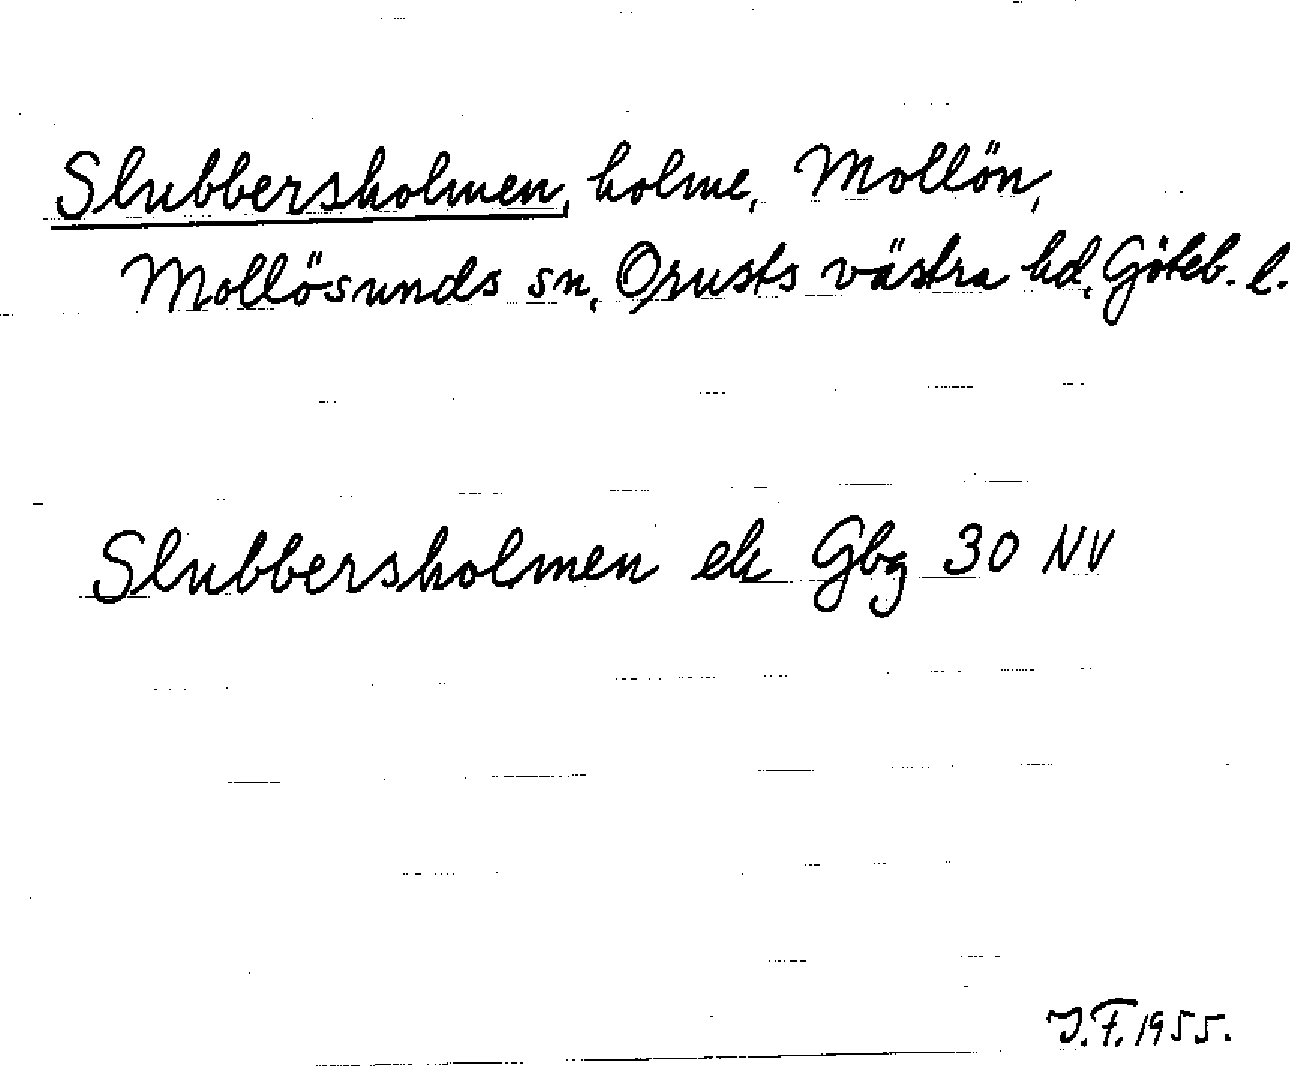 Slubbersholmen, holme, Mollön,
Mollösunds sn, Orusts västra hd, Göteb. l.
Slubbersholmen ek Gbg 30 NV
J.F. 1955.